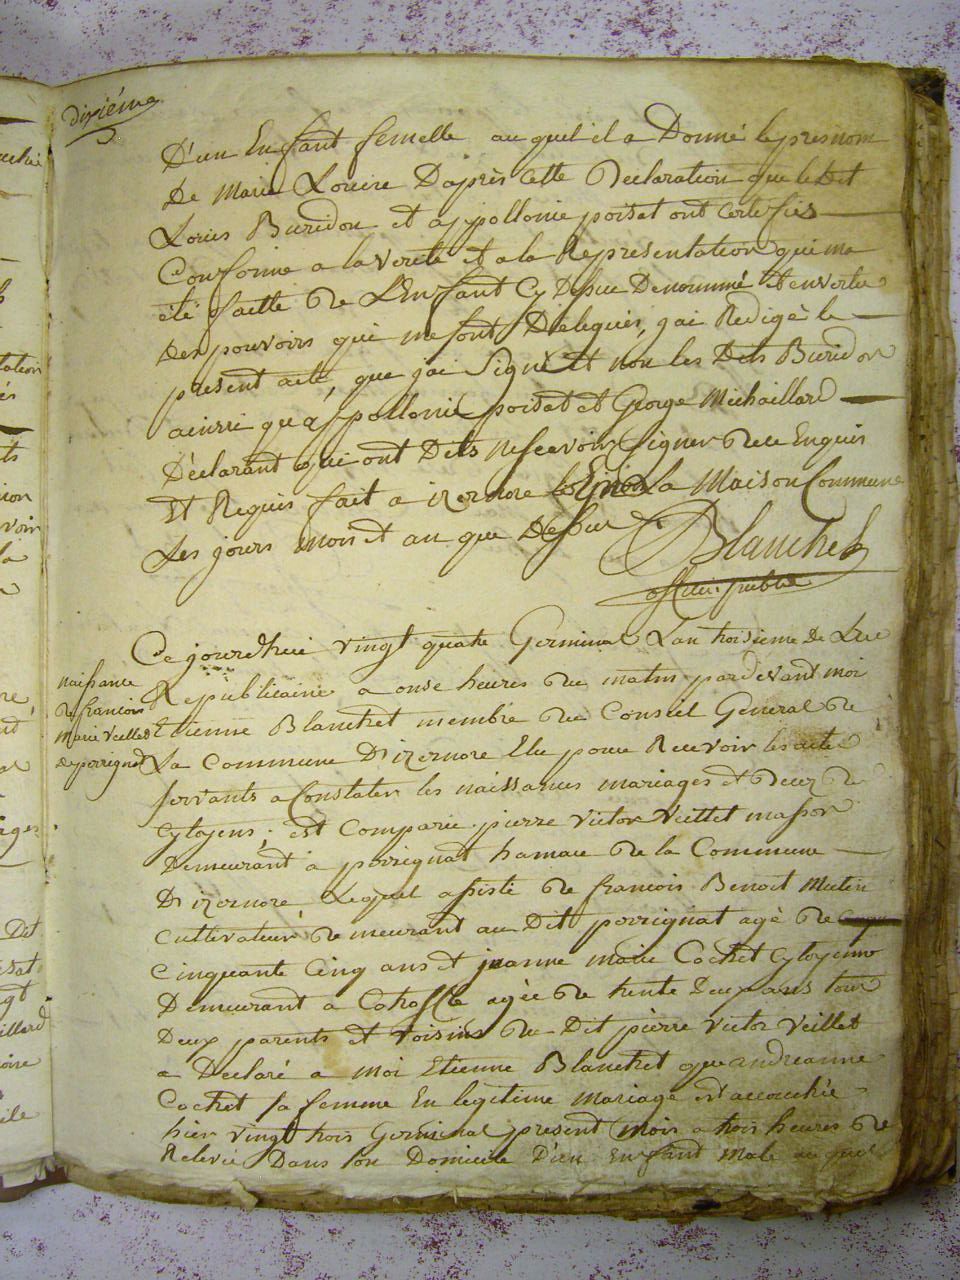 dixiéme
D'un Enfant femelle au quel il a Donné le presnom
De Marie Louise D'après Cette Declaration que le dit
Louis Buridon et appollonie poisat ont Certifiés
Conforme a la verité et a la Representation qui ma
été faitte de L'Enfant Cy Desue Denommé et envertu
Des pouvoirs qui me sont Délegués, j'ai Redigé le
present acte, que j'ai Signé et non les Dits Buridon
ainsi qu'appollonie poisat et George Michaillard
Déclarant qui ont Dits ne scavoir Signer de ce Enquis
Et Requis fait a izernore En la Maison Commune
Les jours mois et an que Dessus
Blanchet
officier public
Ce jourd'huy vingt quatre Germinal L'an troisieme de L'ere
Republicaine a onse heures du matin pardevant moi
Etienne Blanchet membre du Conseil General de
La Commune D'izernore Elu pour Recevoir les actes
servants a Constater les naissances mariages et deces de
Cytoyens, est Comparu pierre victor veillet masson
Demeurant à porrignat hamau de la Commune
D'izernore, Lequel assisté de francois Benoit Mutin
Cultivateur demeurant au Dit porrignat agé de
Cinquante Cinq ans et jeanne marie Cochet Cytoyenne
Demeurant a agée de trente Deux ans tour
Deux parents et voisins du Dit pierre victor veillet
a Déclaré a moi Etienne Blanchet que andréanne
Cochet sa femme En légitime mariage est accouchée
hier vingt trois Germinal present mois a trois heures de
Relevée Dans son Domicile D'un Enfant Male au quel
naissance
de francois
marie veillet
de porrignat